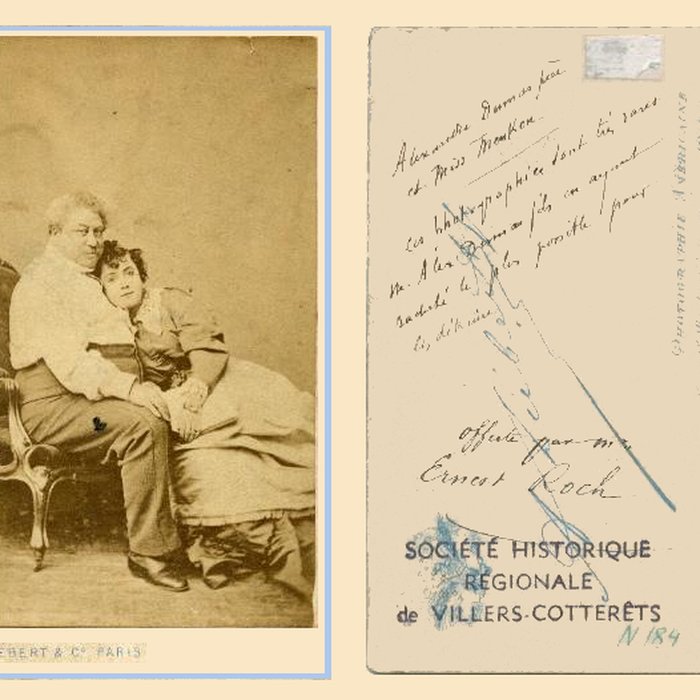 EBERT & Cº PARIS
Alexandre Dumas père
et Miss Menken.
Les photographies sont très rares
M. Alex Dumas fils en ayant
racheté le plus possible pour
les détruire
Offerte par M.
Ernest Roch
SOCIÉTÉ HISTORIQUE
RÉGIONALE
de VILLERS-COTTERÊTS
N 184
PHOTOGRAPHIE AMÉRICAINE